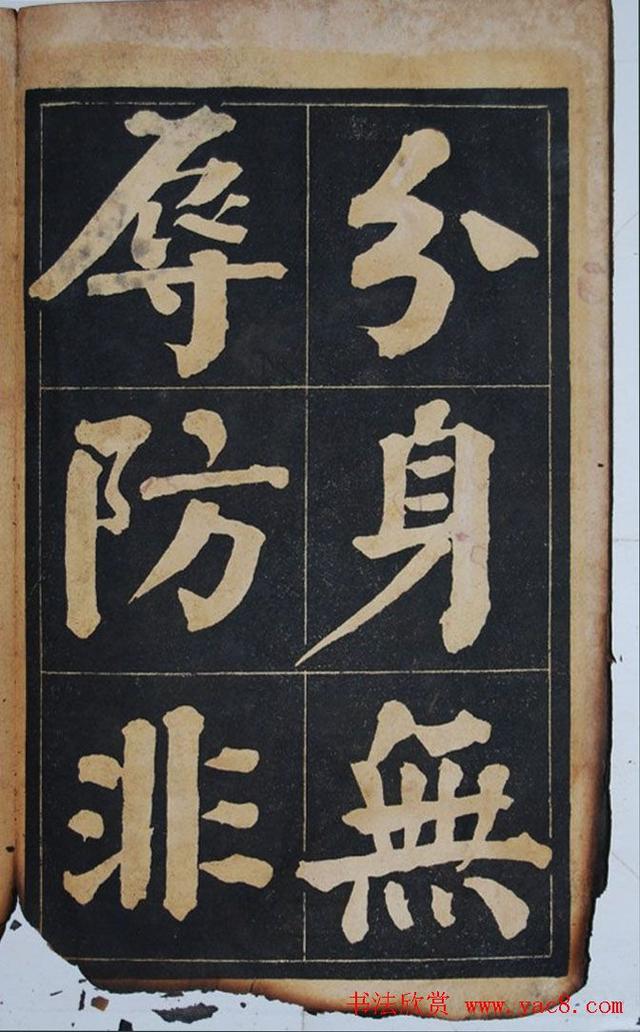 分身無
辱防非
书法欣赏 www.yac8.com